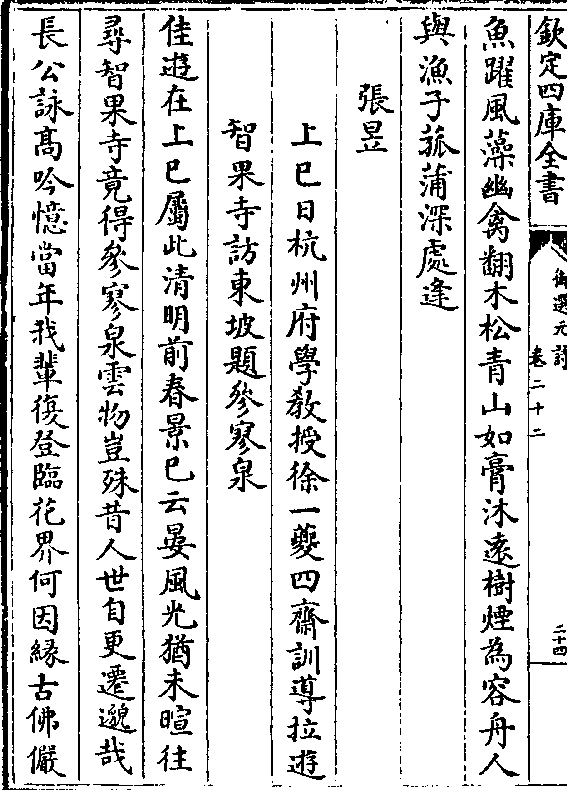 欽定四庫全書
御選元詩
卷二十二
二十四
魚躍風藻幽禽翻木松青山如膏沐遠樹煙為容舟人
與漁子菰蒲深處逢
張昱
上巳日杭州府學教授徐一夔四齋訓導拉遊
智果寺訪東坡題參寥泉
佳遊在上巳屬此清明前春景已云晏風光猶未暄往
尋智果寺竟得參寥泉雲物豈殊昔人世自更遷邈哉
長公詠高吟憶當年我輩復登臨花界何因緣古佛儼